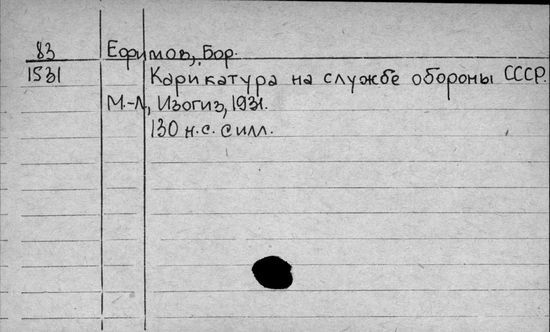 83 Ефимов, Бор.
1531 Карикатура на службе обороны СССР.
М.-Л, Изогиз, 1931.
130 н.с. с илл.